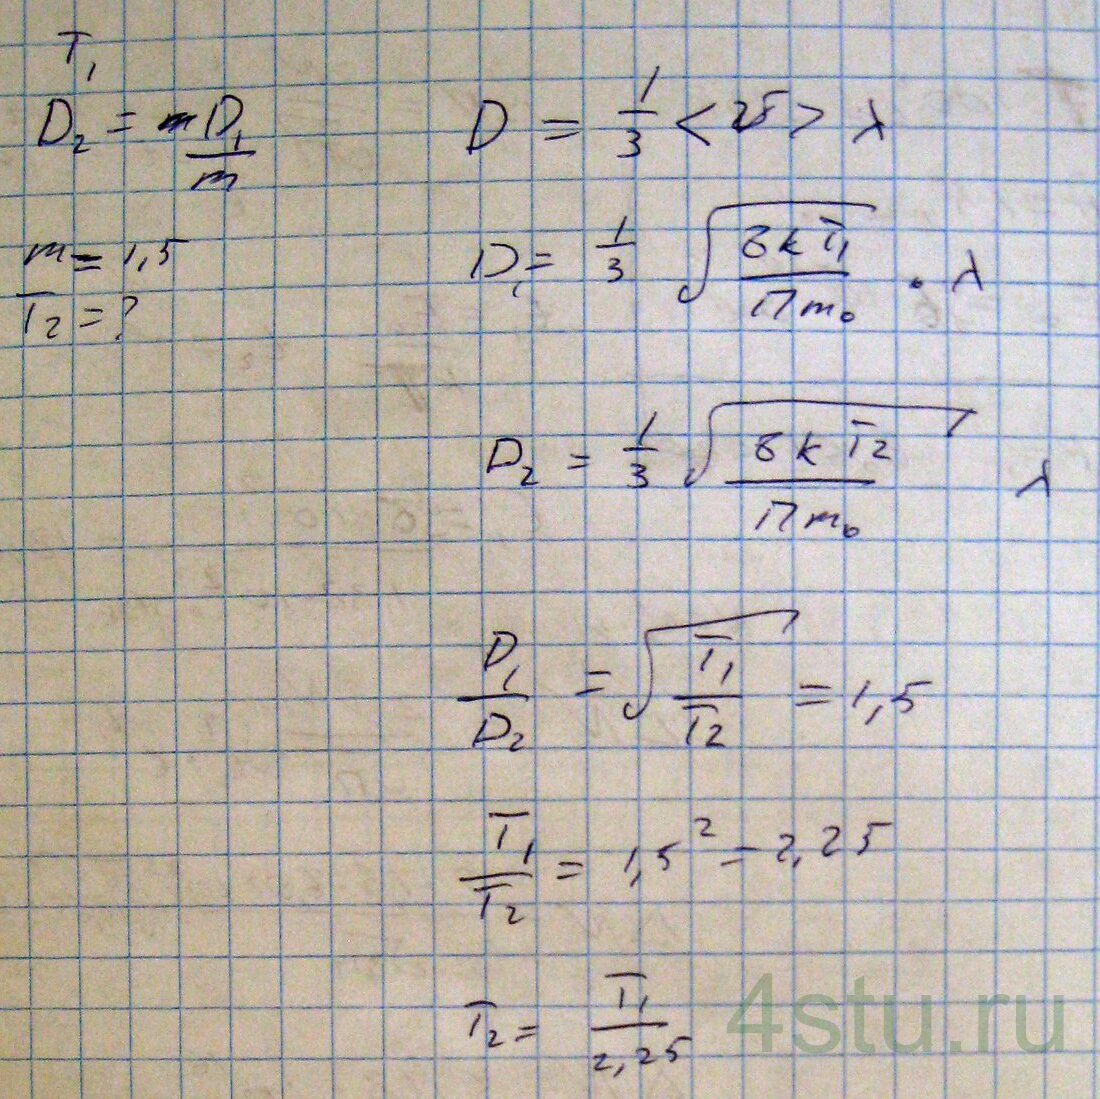 T₁
D₂ = D₁/m
m = 1,5
T₂ = ?
D = 1/3 <υ> λ
D₁ = 1/3 √(8kT₁/Пm₀) · λ
D₂ = 1/3 √(8kT₂/Пm₀) λ
D₁/D₂ = √(T₁/T₂) = 1,5
T₁/T₂ = 1,5² = 2,25
T₂ = T₁/2,25
4stu.ru